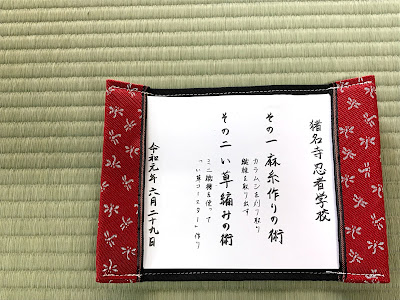 猪名寺忍者学校
その一 麻糸作りの術
カラムシを刈り取り
繊維を取り出す
その二 い草編みの術
ミニ織機を使って
「い草コースター」作り
令和元年六月二十九日